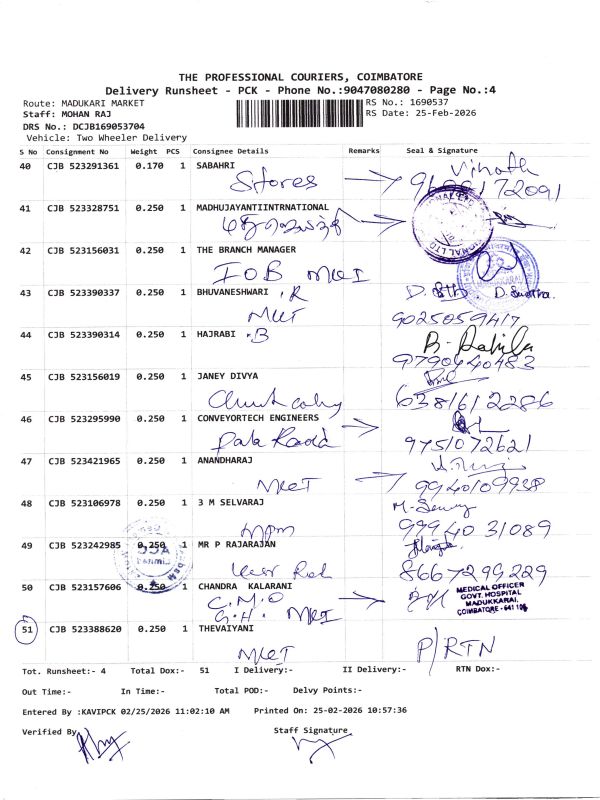 THE PROFESSIONAL COURIERS, COIMBATORE
Delivery Runsheet - PCK - Phone No.:9047080280 - Page No.:4
Route: MADUKARI MARKET RS No.: 1690537
Staff: MOHAN RAJ RS Date: 25-Feb-2026
DRS No.: DCJB169053704
Vehicle: Two Wheeler Delivery
S No Consignment No Weight PCS Consignee Details Remarks Seal & Signature
40 CJB 523291361 0.170 1 SABAHRI Vinoth
Stores
41 CJB 523328751 0.250 1 MADHUJAYANTIINTRNATIONAL
42 CJB 523156031 0.250 1 THE BRANCH MANAGER
IOB MKT
43 CJB 523390337 0.250 1 BHUVANESHWARI . R
MKT 9025059417
44 CJB 523390314 0.250 1 HAJRABI . B
9790640483
45 CJB 523156019 0.250 1 JANEY DIVYA
6381612286
46 CJB 523295990 0.250 1 CONVEYORTECH ENGINEERS
9751072621
47 CJB 523421965 0.250 1 ANANDHARAJ
MKT 9940109938
48 CJB 523106978 0.250 1 3 M SELVARAJ
99940 31089
49 CJB 523242985 0.250 1 MR P RAJARAJAN
8667299229
50 CJB 523157606 0.250 1 CHANDRA KALARANI
C.M.O
G.H. MKT
MEDICAL OFFICER
GOVT. HOSPITAL
MADUKKARAI,
COIMBATORE - 641 105
51 CJB 523388620 0.250 1 THEVAIYANI
MKT P/RTN
Tot. Runsheet:- 4 Total Dox:- 51 I Delivery:- II Delivery:- RTN Dox:-
Out Time:- In Time:- Total POD:- Delvy Points:-
Entered By :KAVIPCK 02/25/2026 11:02:10 AM Printed On: 25-02-2026 10:57:36
Verified By Staff Signature